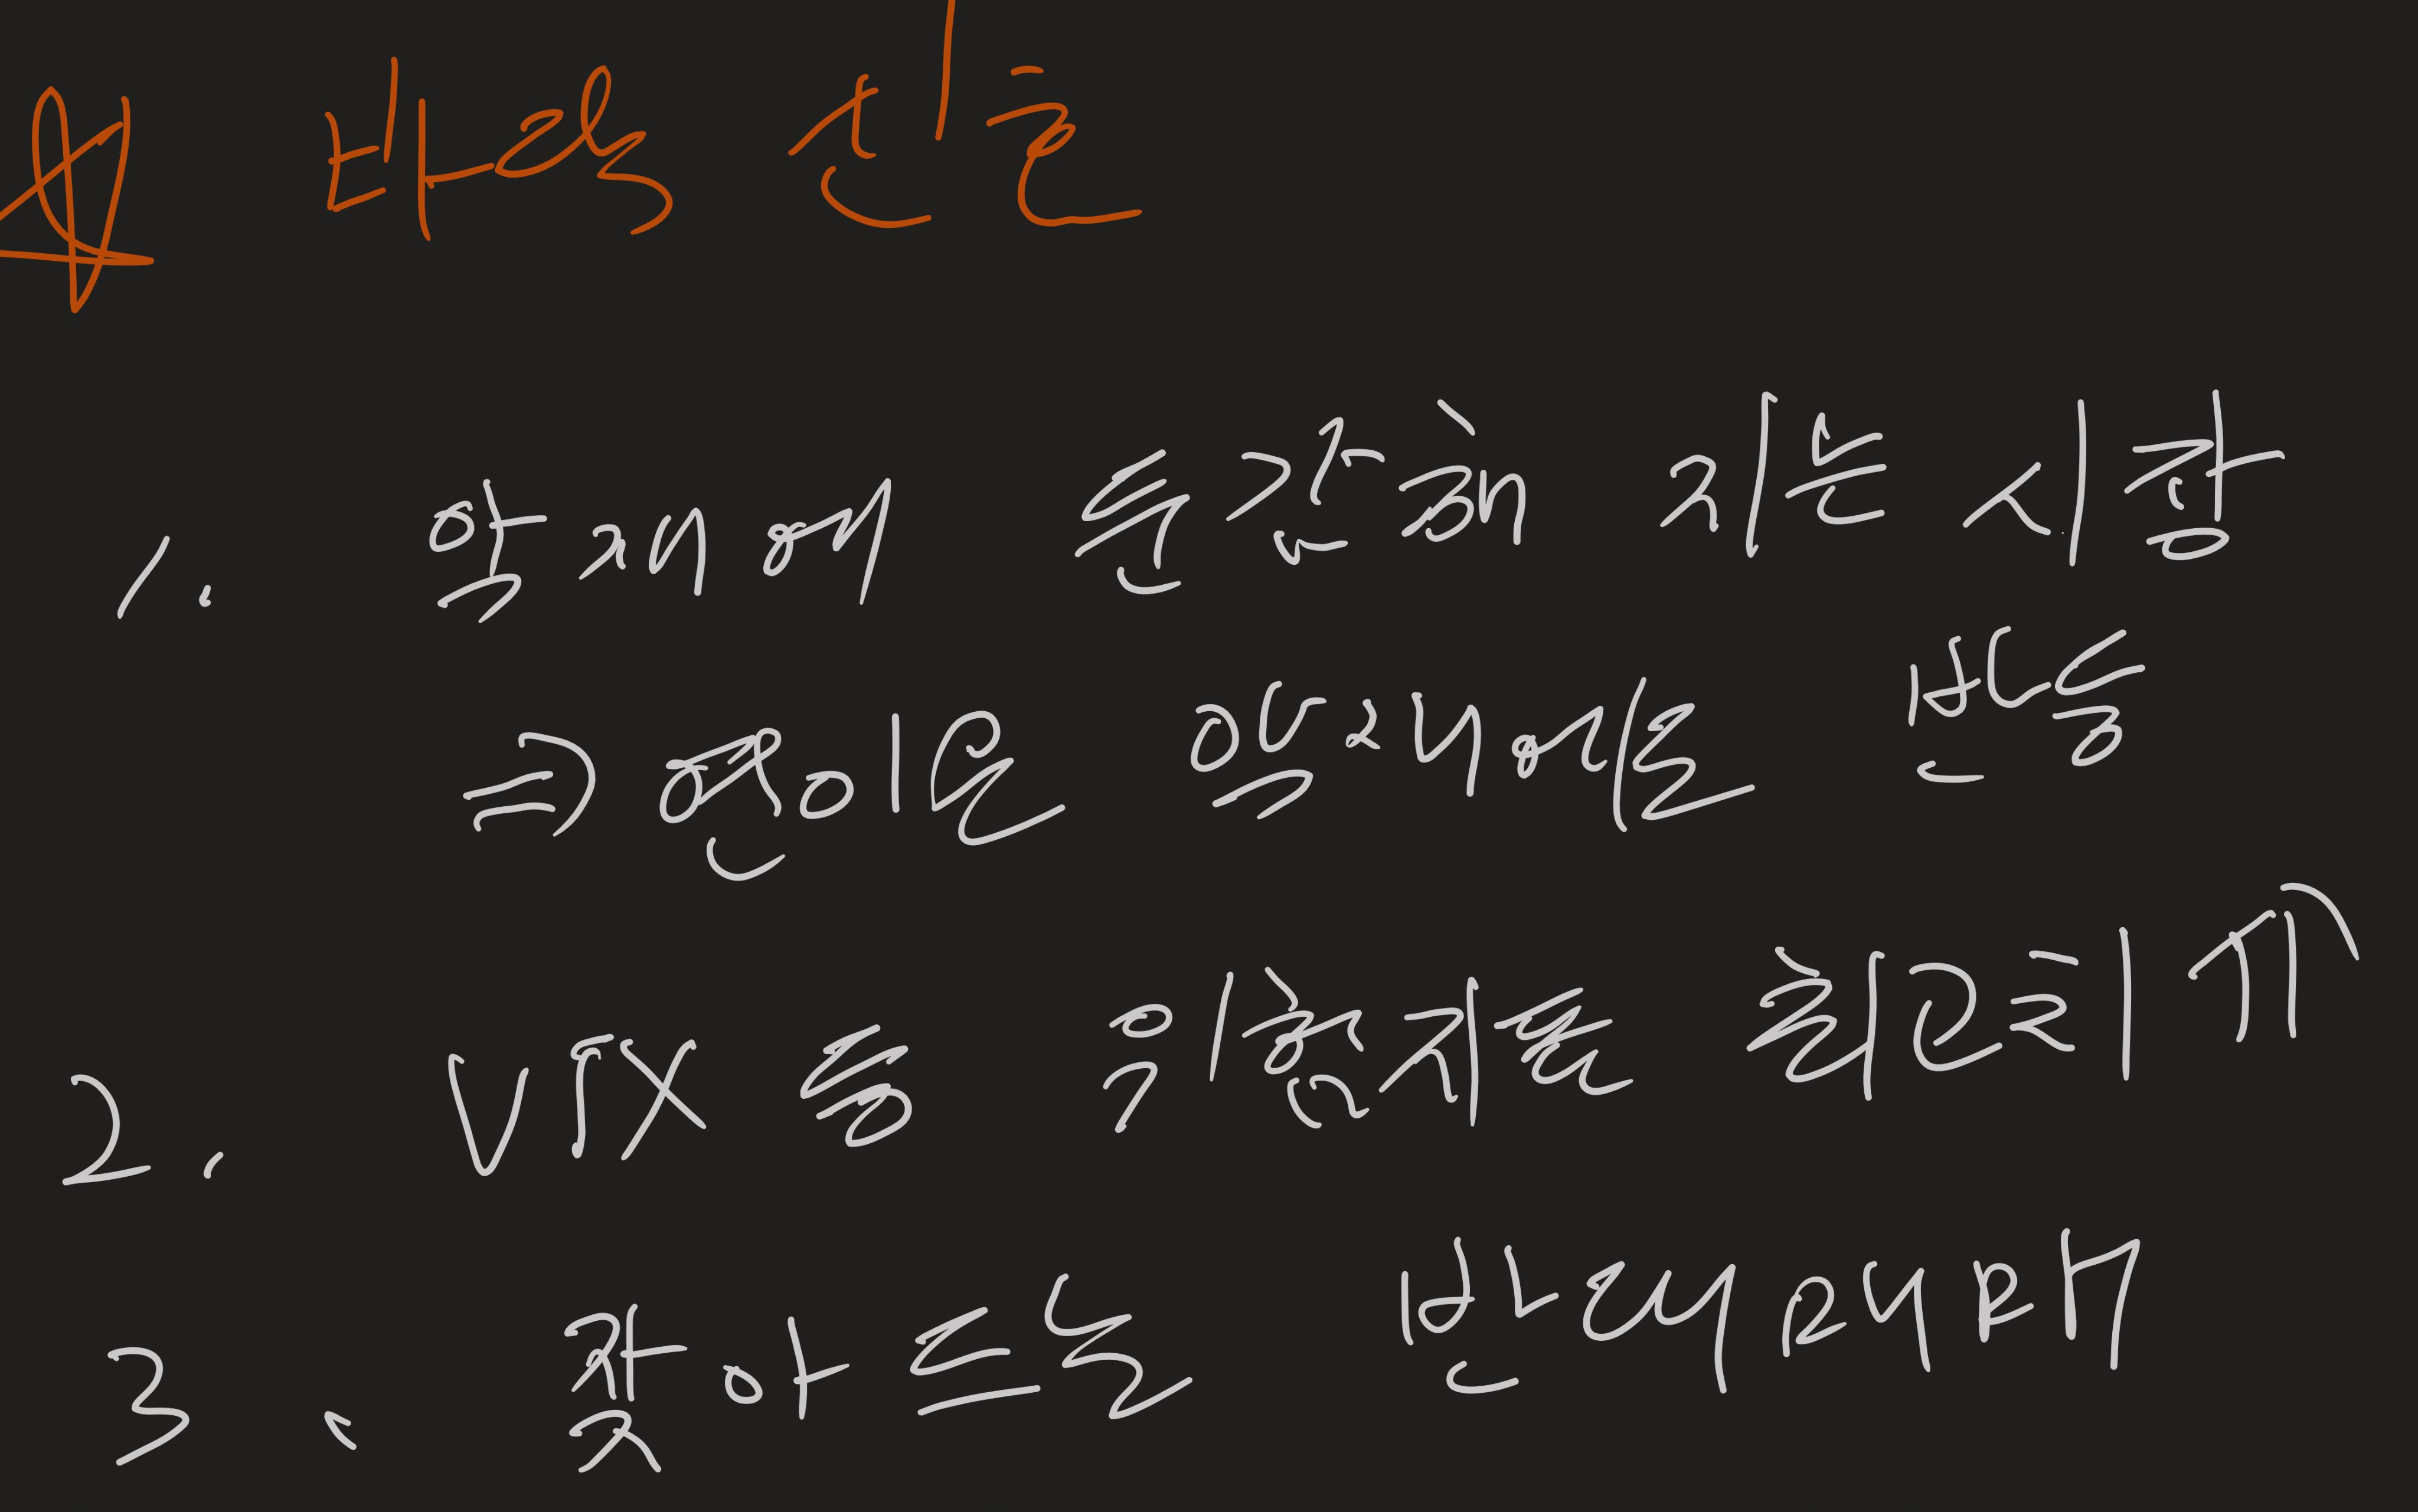 ☆ 바닥 신호
1. 악재에 둔감해 지는 시황
⇒ 연이은 악재에도 반등
2. VIX 등 위험지표 최고치
3. 잦아드는 반대매매